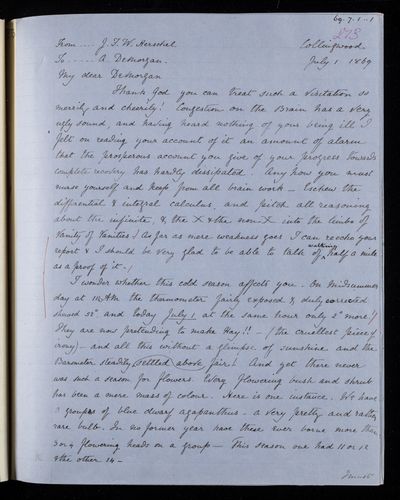 69.7.1-1
From ---- J. F. W. Herschel
Collingwood
To ----- A. DeMorgan.
July 1 1869
My dear DeMorgan
Thank God you can treat such a visitation so
merrily and cheerily! Congestion on the Brain has a very
ugly sound, and having heard nothing of your being ill I
felt on reading your account of it an amount of alarm
that the prosperous account you give of your progress towards
complete recovery has hardly dissipated. Any how you must
nurse yourself and keep from all brain work – Eschew the
differential & integral calculus, and pitch all reasoning
about the infinite, & the X & the non-X into the limbo of
Vanity of Vanities! As far as mere weakness goes I can reecho your
report & I should be very glad to be able to talk of walking half a mile
as a proof of it –
I wonder whether this cold season affects you. On Midsummer
day at 11 AM the thermometer fairly exposed & duly corrected
shewed 52° and today July 1 at the same hour only 2° more!!
They are now pretending to make Hay!! – (the cruellest piece of
irony) – and all this without a glimpse of sunshine and the
Barometer steadily settled above fair! And yet there never
was such a season for flowers. Every flowering bush and shrub
has been a mere mass of colour. Here is one instance. We have
groups of blue dwarf agapanthus – a very pretty and rather
rare bulb. In no former year have these ever borne more than
3 or 4 flowering heads on a group – This season one had 11 or 12
& the other 14 –
I must